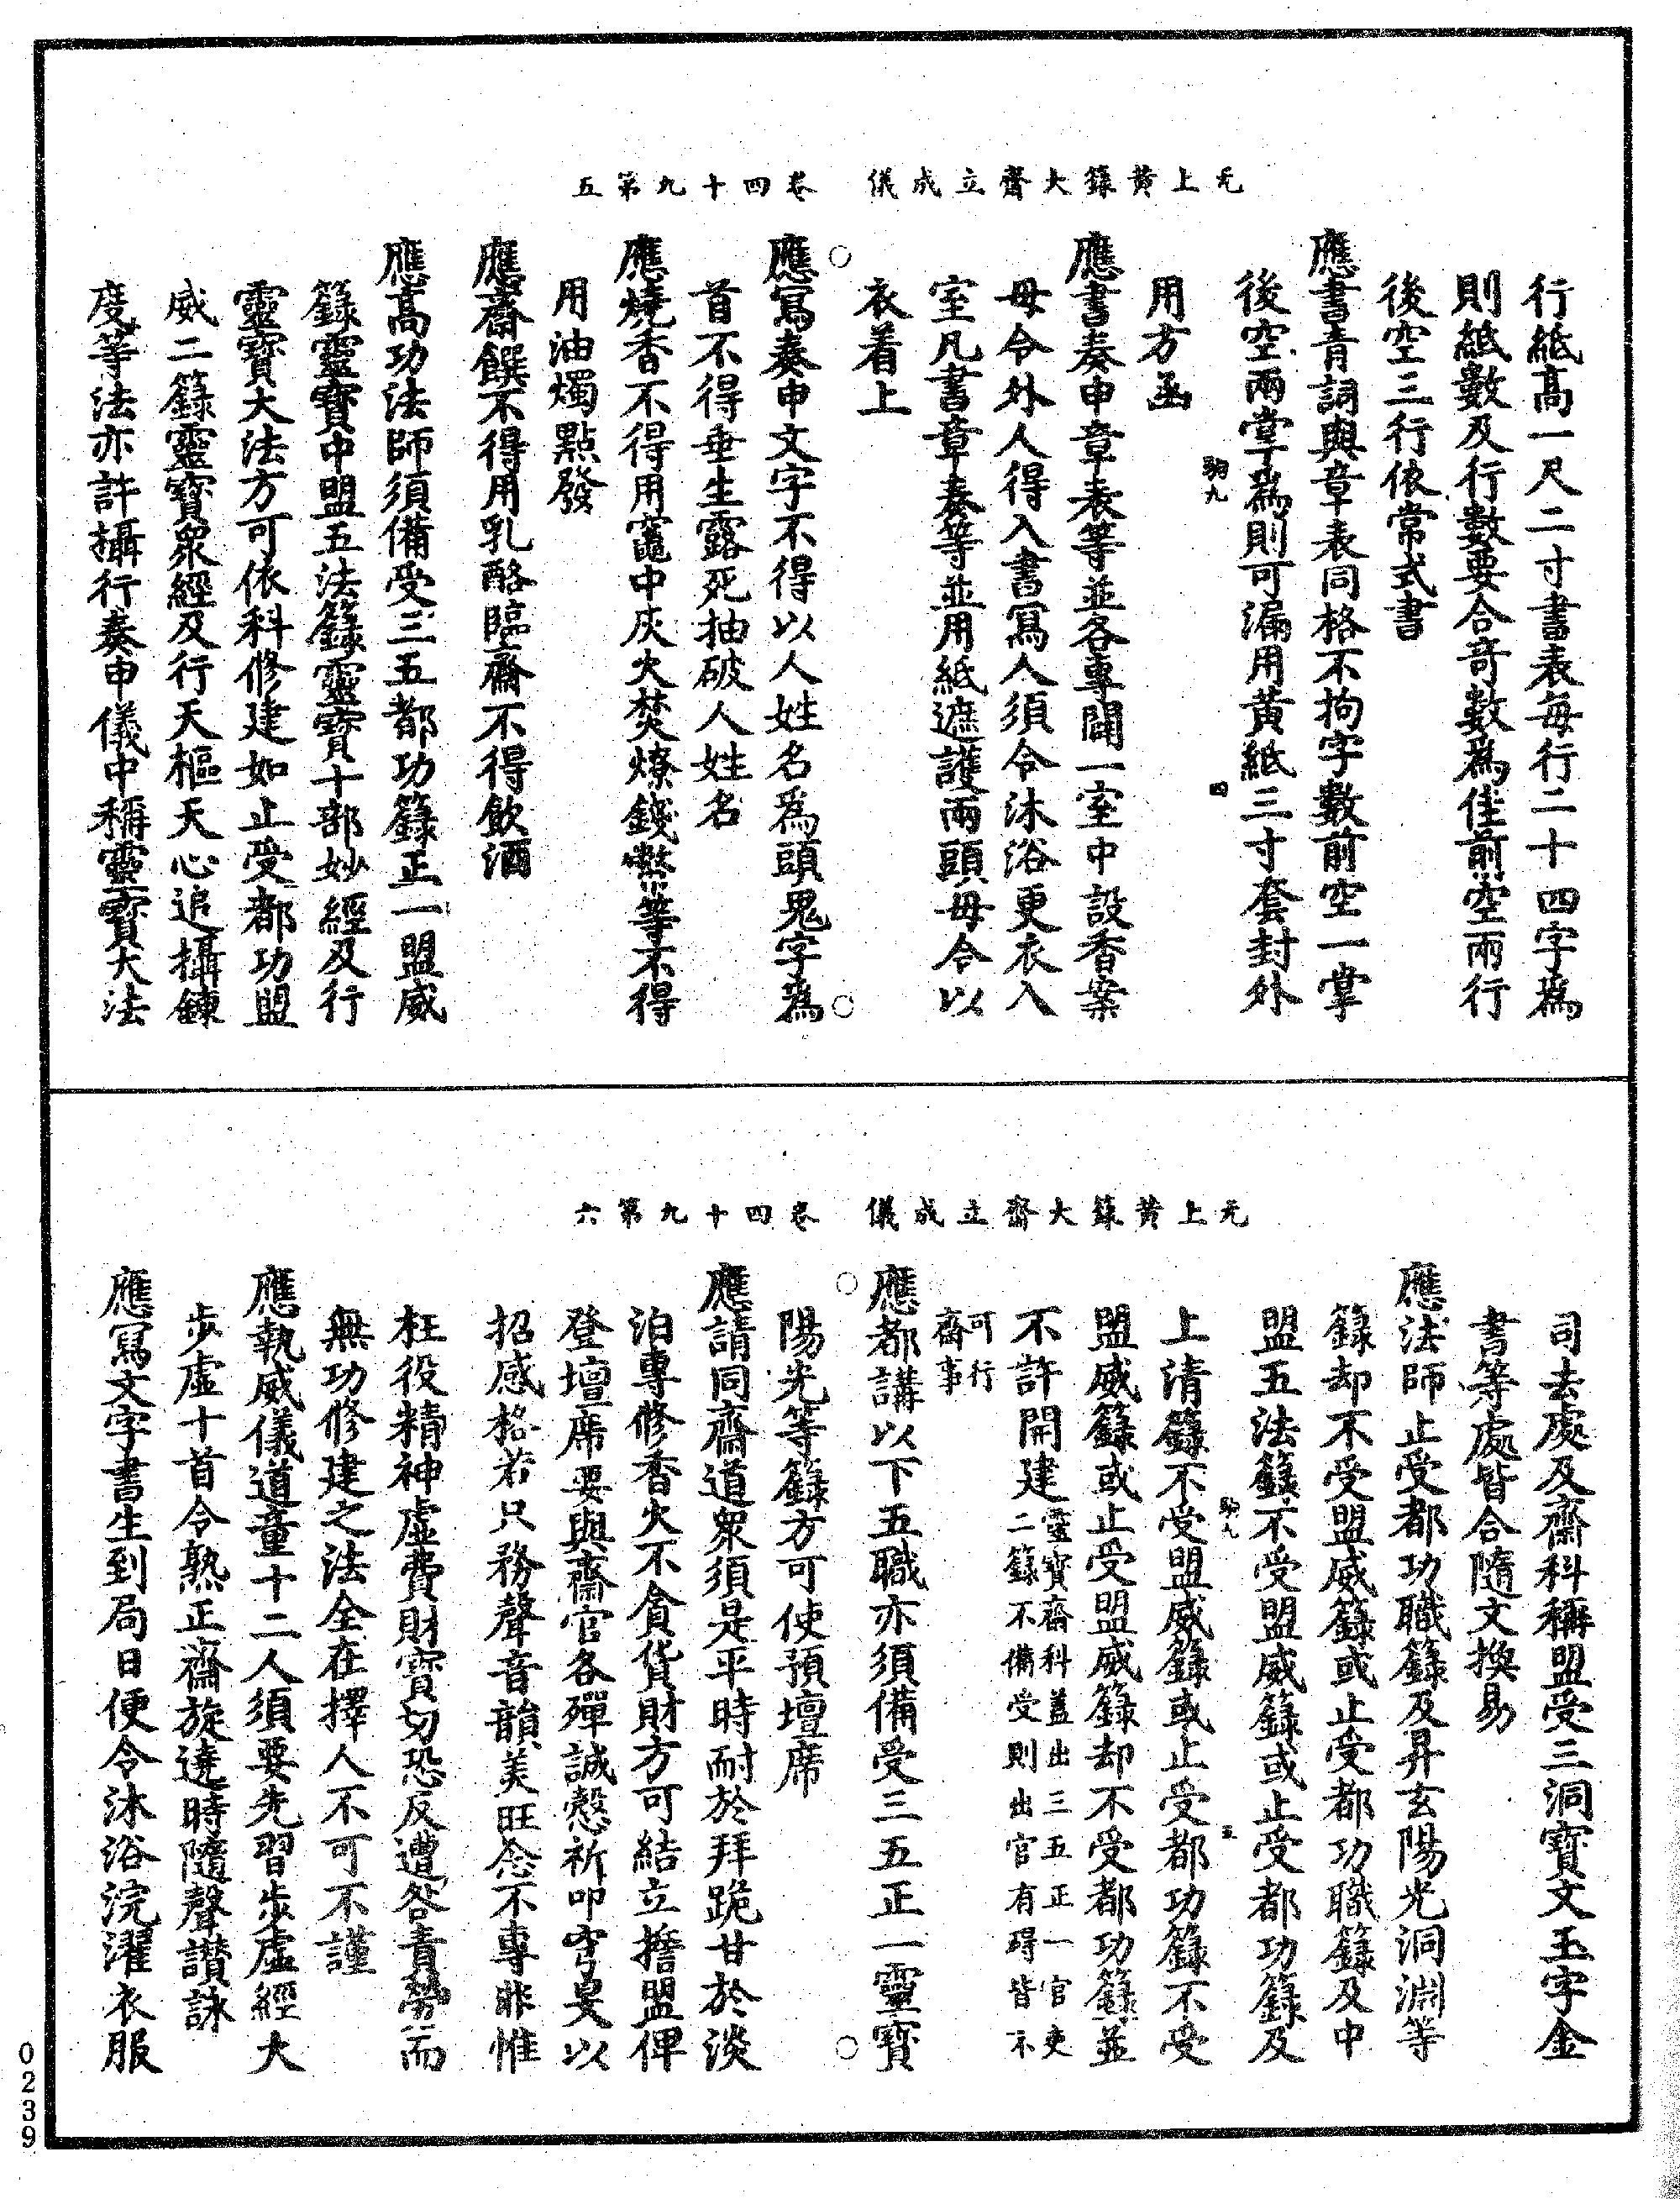 无上黃籙大齋立成儀　卷四十九第五
行紙高一尺二寸書表每行二十四字為
則紙數及行數要合奇數為佳前空兩行
後空三行依常式書
應書青詞與章表同格不拘字數前空一掌
後空兩掌為則可漏用黃紙三寸套封外
駒九　四
用方函
應書奏申章表等並各專闢一室中設香案
毋令外人得入書寫人須令沐浴更衣入
室凡書章奏等並用紙遮護兩頭毋令以
衣着上
應寫奏申文字不得以人姓名為頭鬼字為
首不得垂生露死抽破人姓名
應燒香不得用竈中灰火焚燎錢幣等不得
用油燭點發
應齋饌不得用乳酪臨齋不得飲酒
應高功法師須備受三五都功籙正一盟威
籙靈寶中盟五法籙靈寶十部妙經及行
靈寶大法方可依科修建如止受都功盟
威二籙靈寶衆經及行天樞天心追攝鍊
度等法亦許攝行奏申儀中稱靈寶大法
无上黃籙大齋立成儀　卷四十九第六
司去處及齋科稱盟受三洞寶文玉字金
書等處皆合隨文換易
應法師止受都功職籙及昇玄陽光洞淵等
籙却不受盟威籙或止受都功職籙及中
盟五法籙不受盟威籙或止受都功籙及
駒九　五
上清籙不受盟威籙或止受都功籙不受
盟威籙或止受盟威籙却不受都功籙並
不許開建靈寶齋科蓋出三五正一官吏
二籙不備受則出官有碍皆不
可行
齋事
應都講以下五職亦須備受三五正一靈寶
陽光等籙方可使預壇席
應請同齋道衆須是平時耐於拜跪甘於淡
泊專修香火不貪貨財方可結立擔盟俾
登壇席要與齋官各殫誠慤祈叩穹旻以
招感格若只務聲音韻美旺念不專非惟
枉役精神虛費財寶切恐反遭咎責勞而
無功修建之法全在擇人不可不謹
應執威儀道童十二人須要先習步虛經大
步虛十首令熟正齋旋遶時隨聲讃詠
應寫文字書生到局日便令沐浴浣濯衣服
0239